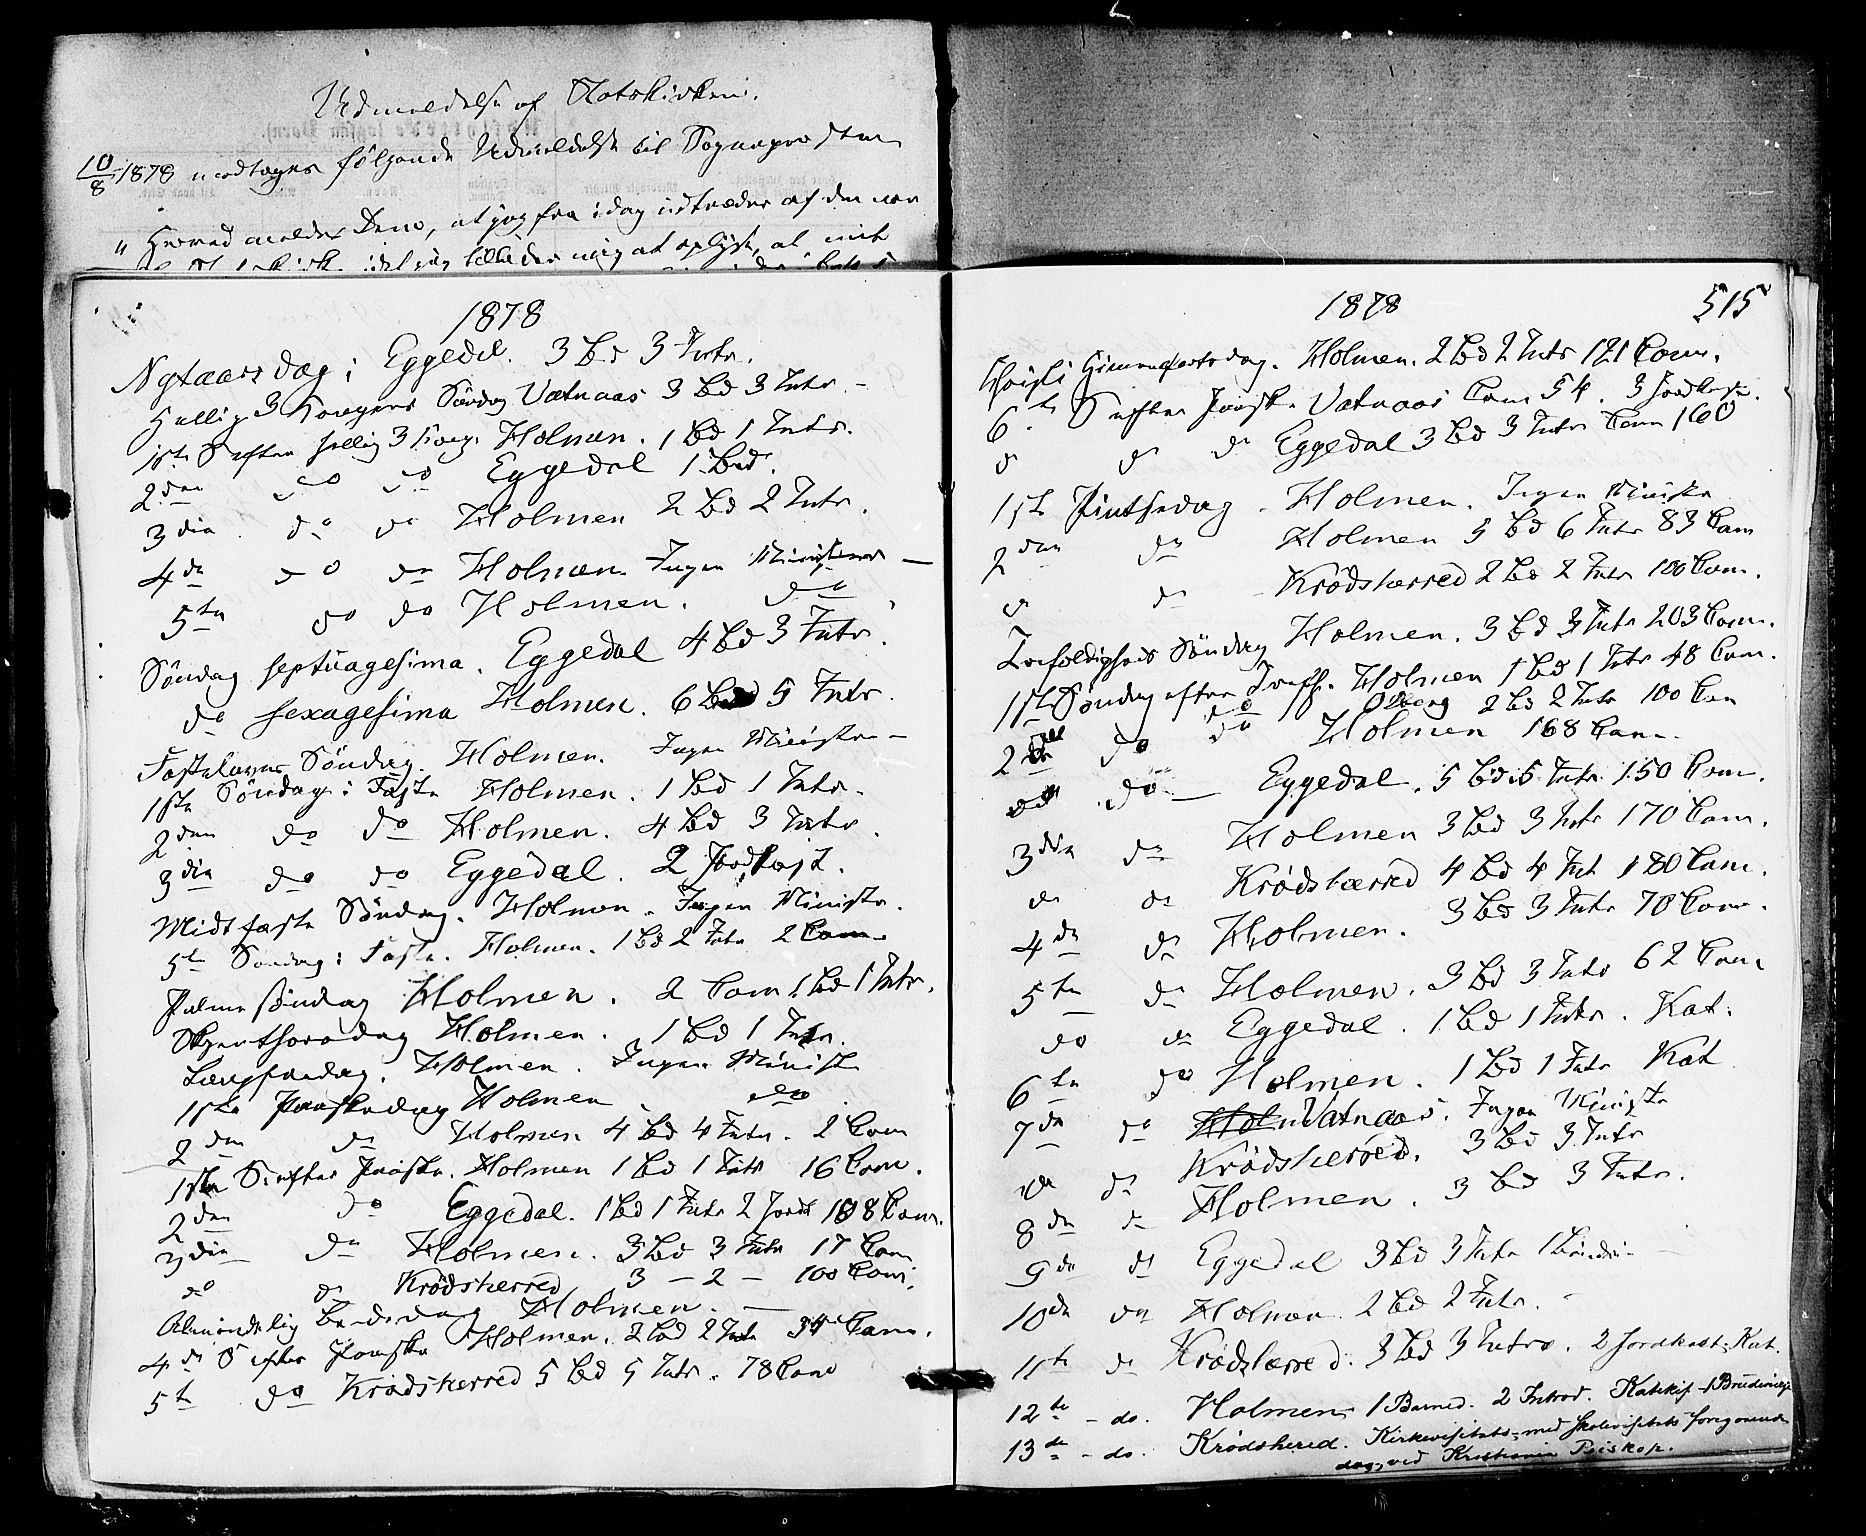 Udmeldelse af Statskirken.
10/8 1878 modtages følgende Udmeldelse til Sognepræsten
" Herved meldes Dem, at jeg fra idag udtræder af den nor
idet jeg tillader mig at oplyse, at mit
1878
Nytaarsdag i Eggedal. 3 Bd 3 Intr.
Hellig 3 Kongers Søndag Vatnaas 3 Bd 3 Intr. -
1ste S efter hellig 3 Kong. Holmen. 1 Bd 1 Intr.
2den do do Eggedal 1 Bd.
3die do do Holmen 2 Bd 2 Intr.
4de do do Holmen Ingen Minister -
5te do do Holmen. do
Søndag septuagesima. Eggedal 4 Bd 3 Intr.
do sexagesima Holmen. 6 Bd 5 Intr.
Fastelavns Søndag. Holmen. Ingen Minister -
1ste Søndag i Faste Holmen. 1 Bd 1 Intr.
2den do do Holmen. 4 Bd 3 Intr.
3die do do Eggedal. 2 Jordkast.
Midtfaste Søndag. Holmen. Ingen Ministr.
5te Søndag i Faste. Holmen. 1 Bd 2 Intr 2 Com
Palmesøndag Holmen. 2 Com 1 Bd 1 Intr.
Skjærthorsdag Holmen. 1 Bd 1 Intr.
Langfredag. Holmen. Ingen Minist
1ste Paaskedag Holmen do
2den do Holmen 4 Bd 4 Intr. 2 Com
1ste S. efter Paaske. Holmen 1 Bd 1 Intr 16 Com.
2den do Eggedal. 1 Bd 1 Intr 2 Jordk 108 Com.
3die do Holmen. 3 Bd 3 Intr 17 Com
do do Krødsherred 3 - 2 - 100 Com.
Almindelig Bededag Holmen. -
4de S efter Paaske Holmen. 2 Bd 2 Intr 34 Com.
5te do Krødsherred 5 Bd 5 Intr. 78 Com
1878 515
Christi Himmelfartsdag. Holmen. 2 Bd 2 Intr 121 Com.
6te S efter Paask. Vatnaas Com 54. 3 Jordkast.
d do do Eggedal 3 Bd 3 Intr Com 160
1ste Pintsedag. Holmen. Ingen Ministr
2den do Holmen 5 Bd 6 Intr 83 Com
d do Krødsherred 2 Bd 2 Intr 100 Com.
Trefoldigheds Søndag Holmen. 3 Bd 3 Intr 203 Com.
1ste Søndag efter Tref. Holmen 1 Bd 1 Intr 48 Com.
do Olberg 2 Bd 2 Intr 100 Com
2den do do Holmen 168 Com.
do do - Eggedal. 5 Bd 5 Intr. 150 Com.
3die do Holmen 3 Bd 3 Intr 170 Com.
do do Krødsherred 4 Bd 4 Int 180 Com.
4de do Holmen. 3 Bd 3 Intr 70 Com.
5te do Holmen. 3 Bd 3 Intr 62 Com
do do Eggedal. 1 Bd 1 Intr. Kat.
6te do Holmen. 1 Bd 1 Intr Kat
7de do Holm Vatnaas. Ingen Ministr
do do Krødsherred. 3 Bd 3 Intr
8de do Holmen. 3 Bd 3 Intr.
9de do Eggedal 3 Bd 3 Intr
10de do Holmen. 2 Bd 2 Intr. -
11te do Krødsherred. 3 Bd 3 Intro. 2 Jordkast. Kat.
12te - do. Holmen 1 Barned. 2 Introd. Katekis - 1 Brudevielse
13de - do. Krødsherred. Kirkevisitats med Skolevisitats foregaaende
dag, ved Kristiania Biskop.